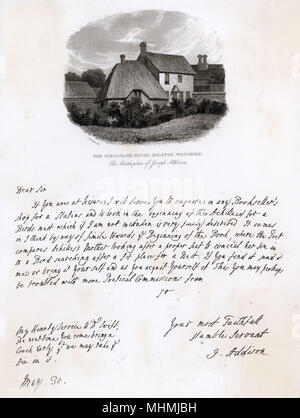 THE PARSONAGE HOUSE, MILSTON, WILTSHIRE.
The Birth-place of Joseph Addison.
Dear Sir
If You are at leisure I will desire You to enquire in any Bookseller's
shop for a Statius and to look in the beginning of the Achilleid for a
Birds nest which if I am not mistaken is very finely described. It comes
in I think by way of Simile towards ye Beginning of the Book, where the Poet
compares Achilles's Mother looking after a proper seat to conceal her son in
to a Bird searching after a fit place for a Nest. If You find it send it
me or bring it Yourself and as you acquit Yourself of This You may perhaps
be troubled with more Poetical Commissions from
Sr
Your most Faithfull
Humble Servant
J. Addison.
My Hearty Service to Dr Swift,
The next time You come bring a
Coach Early yt we may take ye
Air in it.
May. 30.
alamy
Image ID: HMMJBH
www.alamy.com